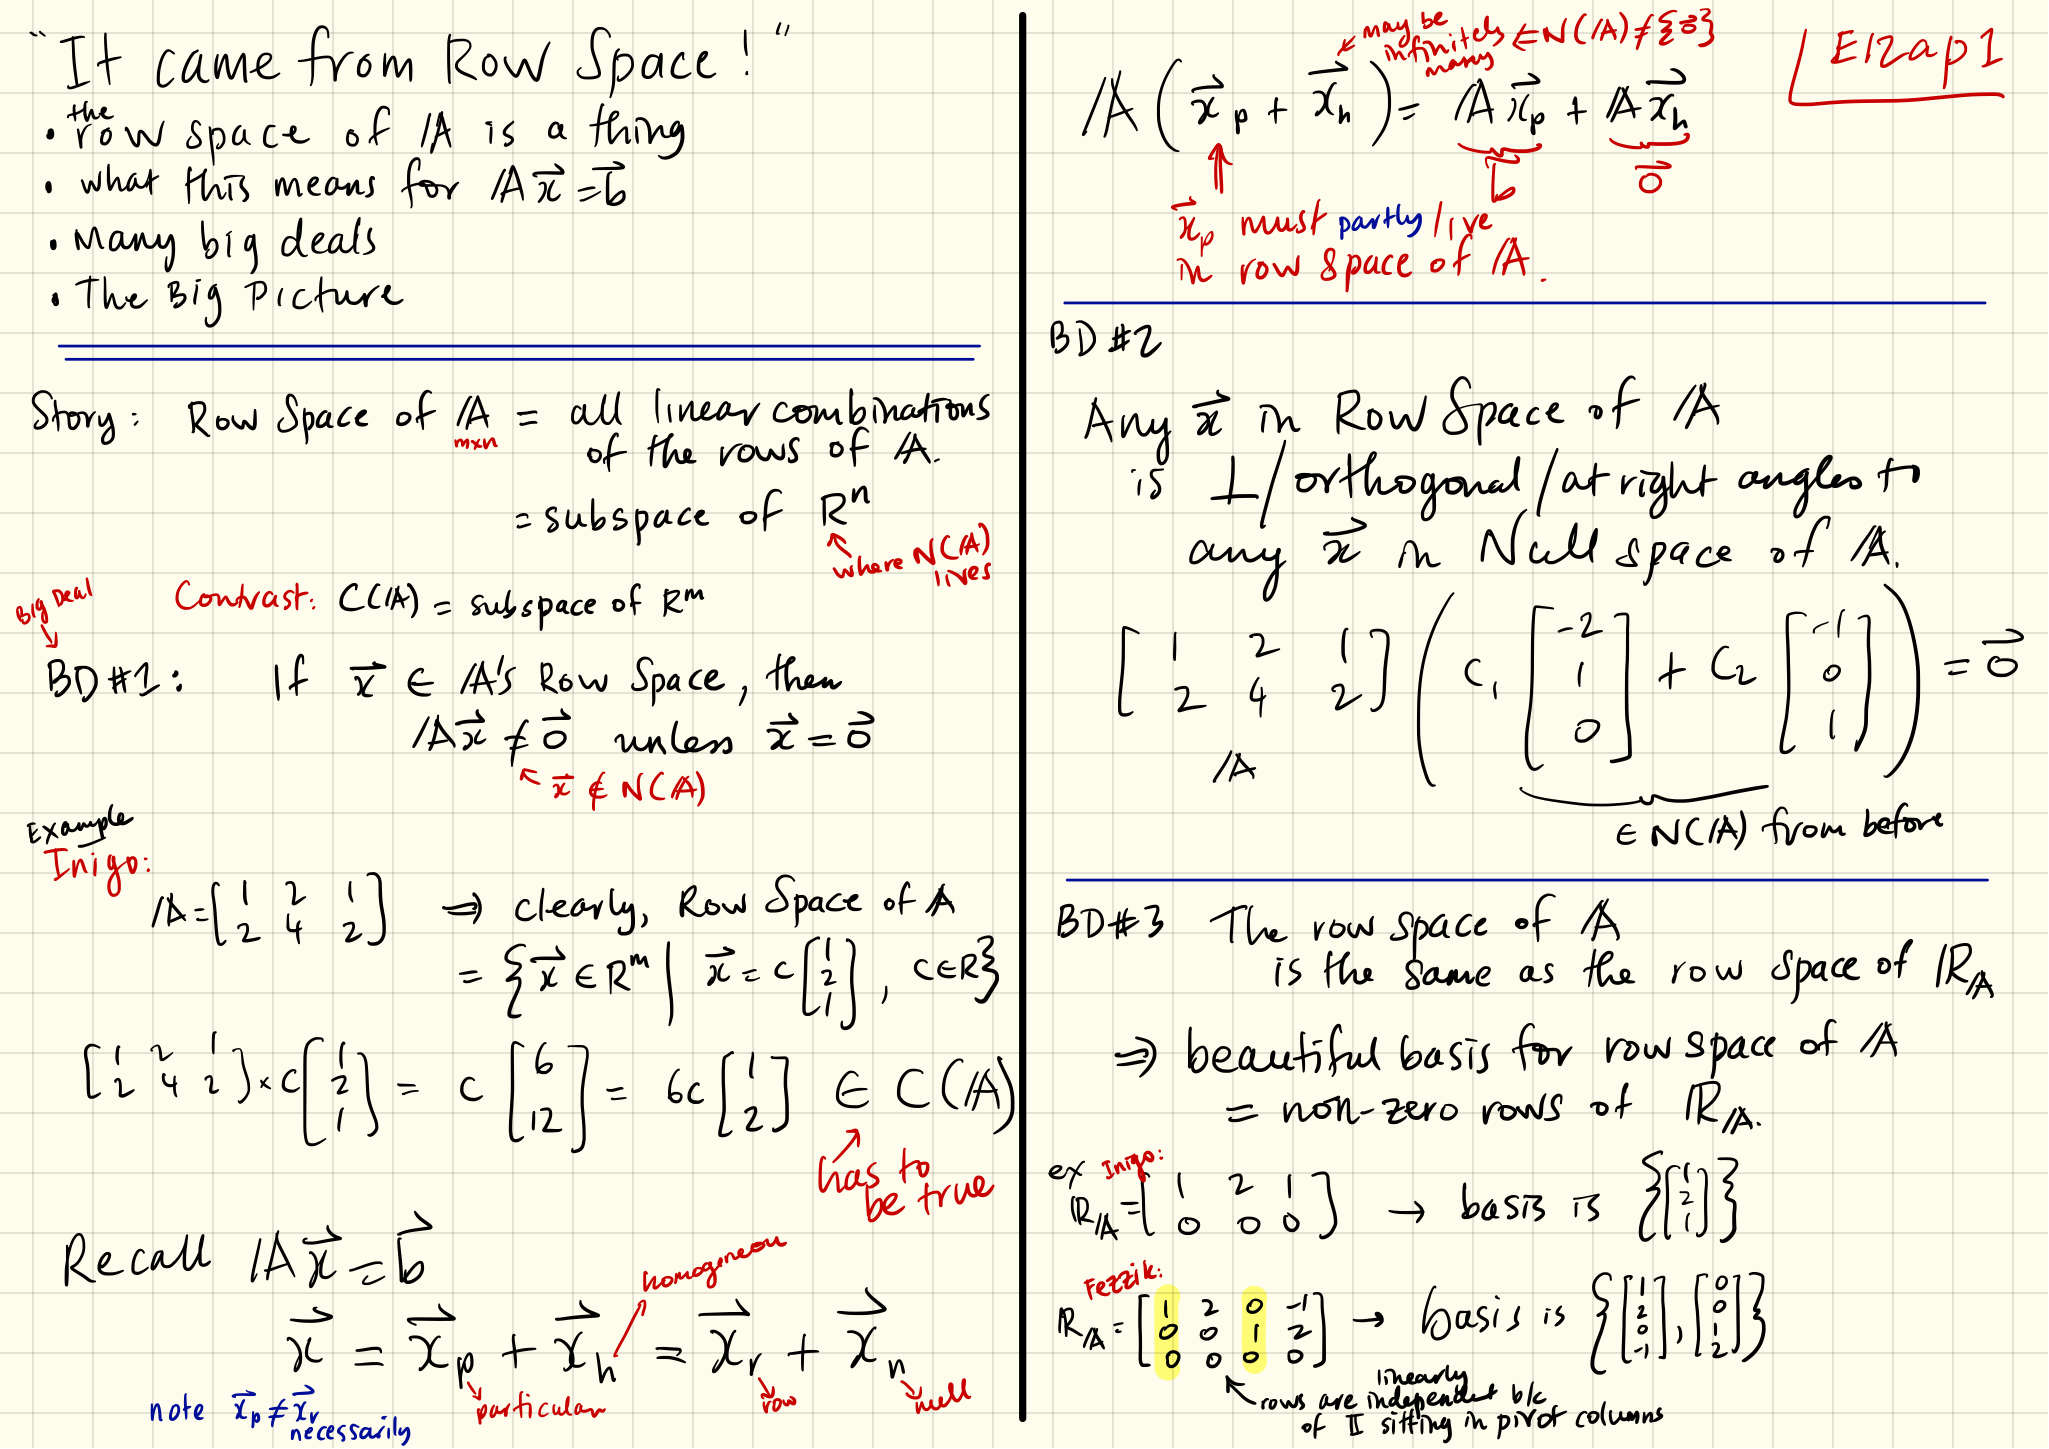 "It came from Row Space!"
• the row space of A is a thing
• what this means for Ax⃗ = b⃗
• Many big deals
• The Big Picture
Story: Row Space of A = all linear combinations
m×n
of the rows of A.
= subspace of Rⁿ
where N(A)
lives
Contrast: C(A) = subspace of Rᵐ
Big Deal
BD #1: If x⃗ ∈ A's Row Space, then
Ax⃗ ≠ 0⃗ unless x⃗ = 0⃗
x⃗ ∉ N(A)
Example
Inigo:
A = [1 2 1; 2 4 2] ⇒ clearly, Row Space of A
= {x⃗ ∈ Rᵐ | x⃗ = c[1; 2; 1], c∈R}
[1 2 1; 2 4 2] × c[1; 2; 1] = c[6; 12] = 6c[1; 2] ∈ C(A)
has to
be true
Recall Ax⃗ = b⃗
homogeneou
x⃗ = x⃗p + x⃗h = x⃗r + x⃗n
particular
row
null
note x⃗p ≠ x⃗r
necessarily
E12ap1
may be
infinitely
many
∈ N(A) ≠ {0⃗}
A(x⃗p + x⃗h) = Ax⃗p + Ax⃗h
b⃗ 0⃗
x⃗p must partly live
in row space of A.
BD #2
Any x⃗ in Row Space of A
is ⊥/orthogonal/at right angles to
any x⃗ in Null space of A.
[1 2 1; 2 4 2] (c₁[-2; 1; 0] + c₂[-1; 0; 1]) = 0⃗
A
∈ N(A) from before
BD #3 The row space of A
is the same as the row space of R_A
⇒ beautiful basis for row space of A
= non-zero rows of R_A.
ex Inigo:
R_A = [1 2 1; 0 0 0] → basis is {[1; 2; 1]}
Fezzik:
R_A = [1 2 0 -1; 0 0 1 2; 0 0 0 0] → basis is {[1; 2; 0; -1], [0; 0; 1; 2]}
linearly
rows are independent b/c
of I sitting in pivot columns